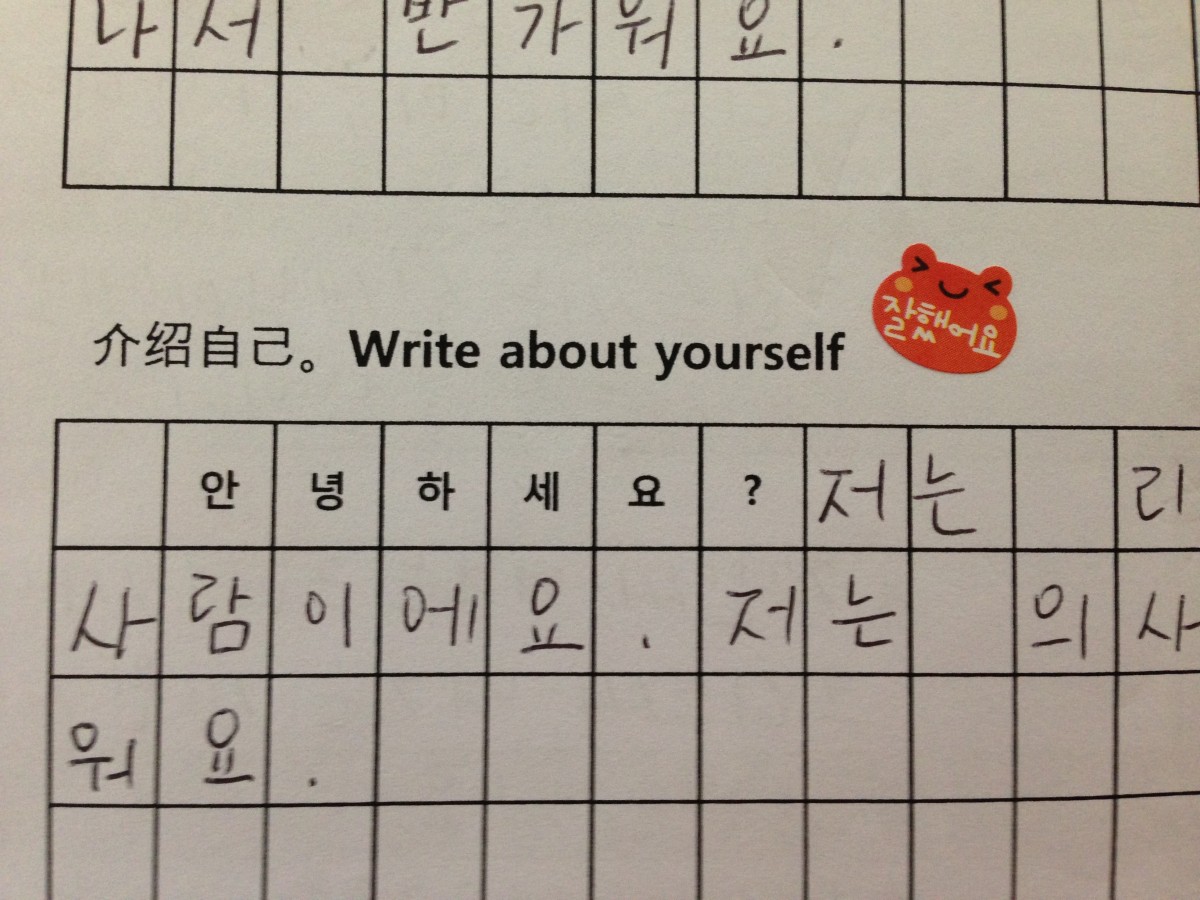 나서 반가워요.
介绍自己。Write about yourself
잘했어요
안녕하세요? 저는 리
사람이에요. 저는 의사
워요.